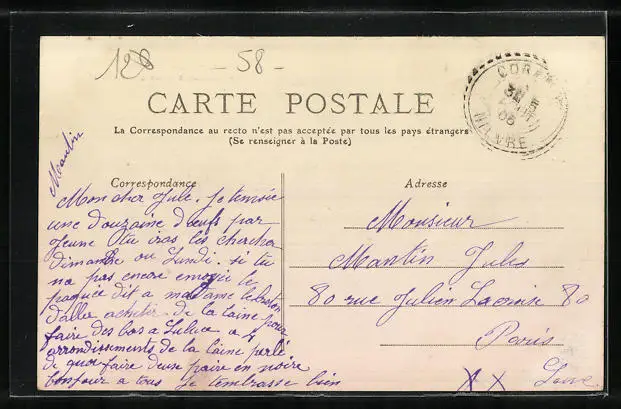 128
- 58 -
CARTE POSTALE
La Correspondance au recto n'est pas acceptée par tous les pays étrangers
(Se renseigner à la Poste)
Correspondance
Mantin
Mon cher Jule. Je tenvoie
une Douzaine D'œufs par
Jeune tu iras les chercher
dimanche ou Lundi. si tu
na pas encore envoyie le
paquée dit a madame
D'aller acheter de la laine pour
faire des bas a Luluce a 4
arrondissements de la laine parlé
de quoi faire deux paire en noire
bonjour a tous Je tembrasse bien
Adresse
Monsieur
Mantin Jules
80 rue Julien Lacroise 80
Paris
NIEVRE
06